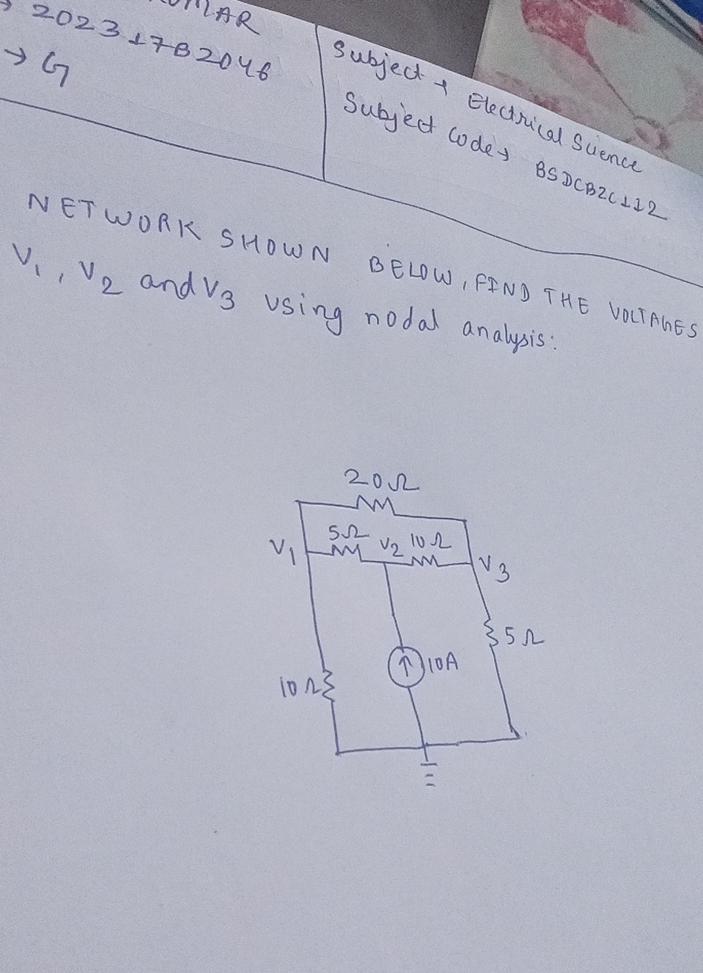 → 202317B2046
→ G
Subject → Electrical Science
Subject Code → BSDCBZC112
NETWORK SHOWN BELOW, FIND THE VOLTAGES
V1, V2 and V3 using nodal analysis:
20Ω
5Ω V2 10Ω
V1 V3
5Ω
10A
10Ω